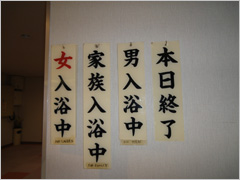 本日終了
男入浴中
家族入浴中
女入浴中